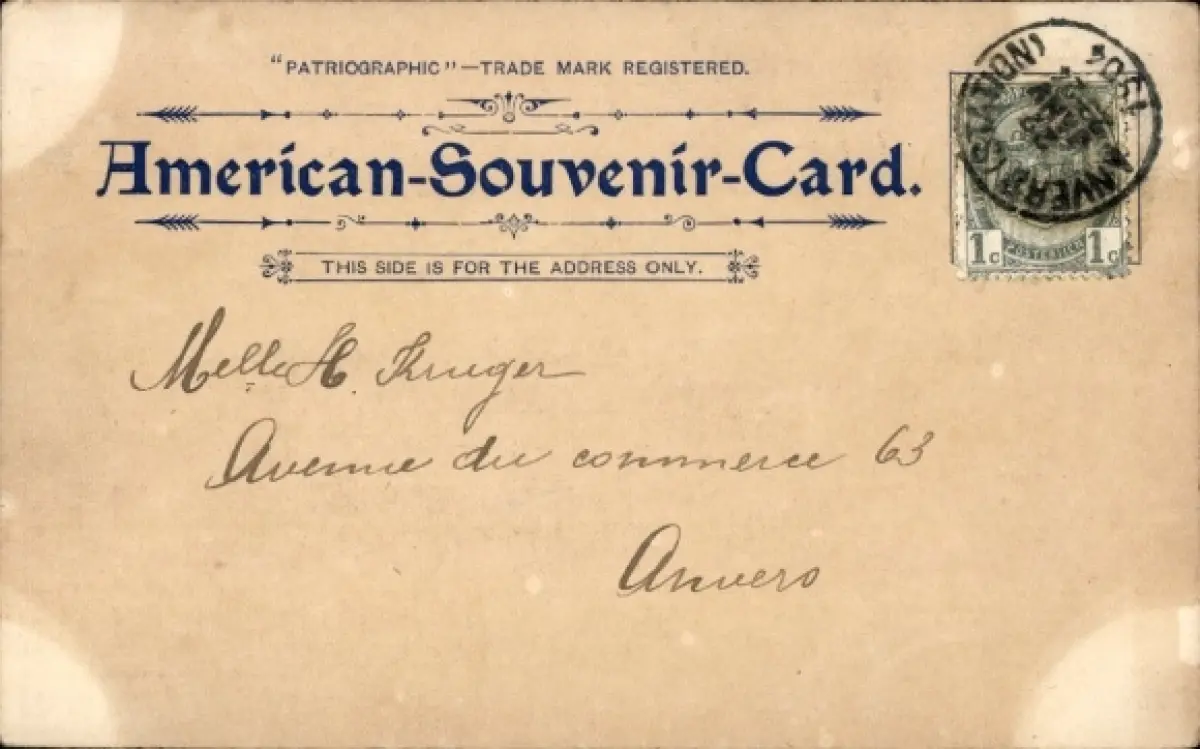 "PATRIOGRAPHIC"—TRADE MARK REGISTERED.
American-Souvenir-Card.
THIS SIDE IS FOR THE ADDRESS ONLY.
ANVERS (STATION)
1904
1c 1c
Melle H. Krueger
Avenue du commerce 63
Anvers